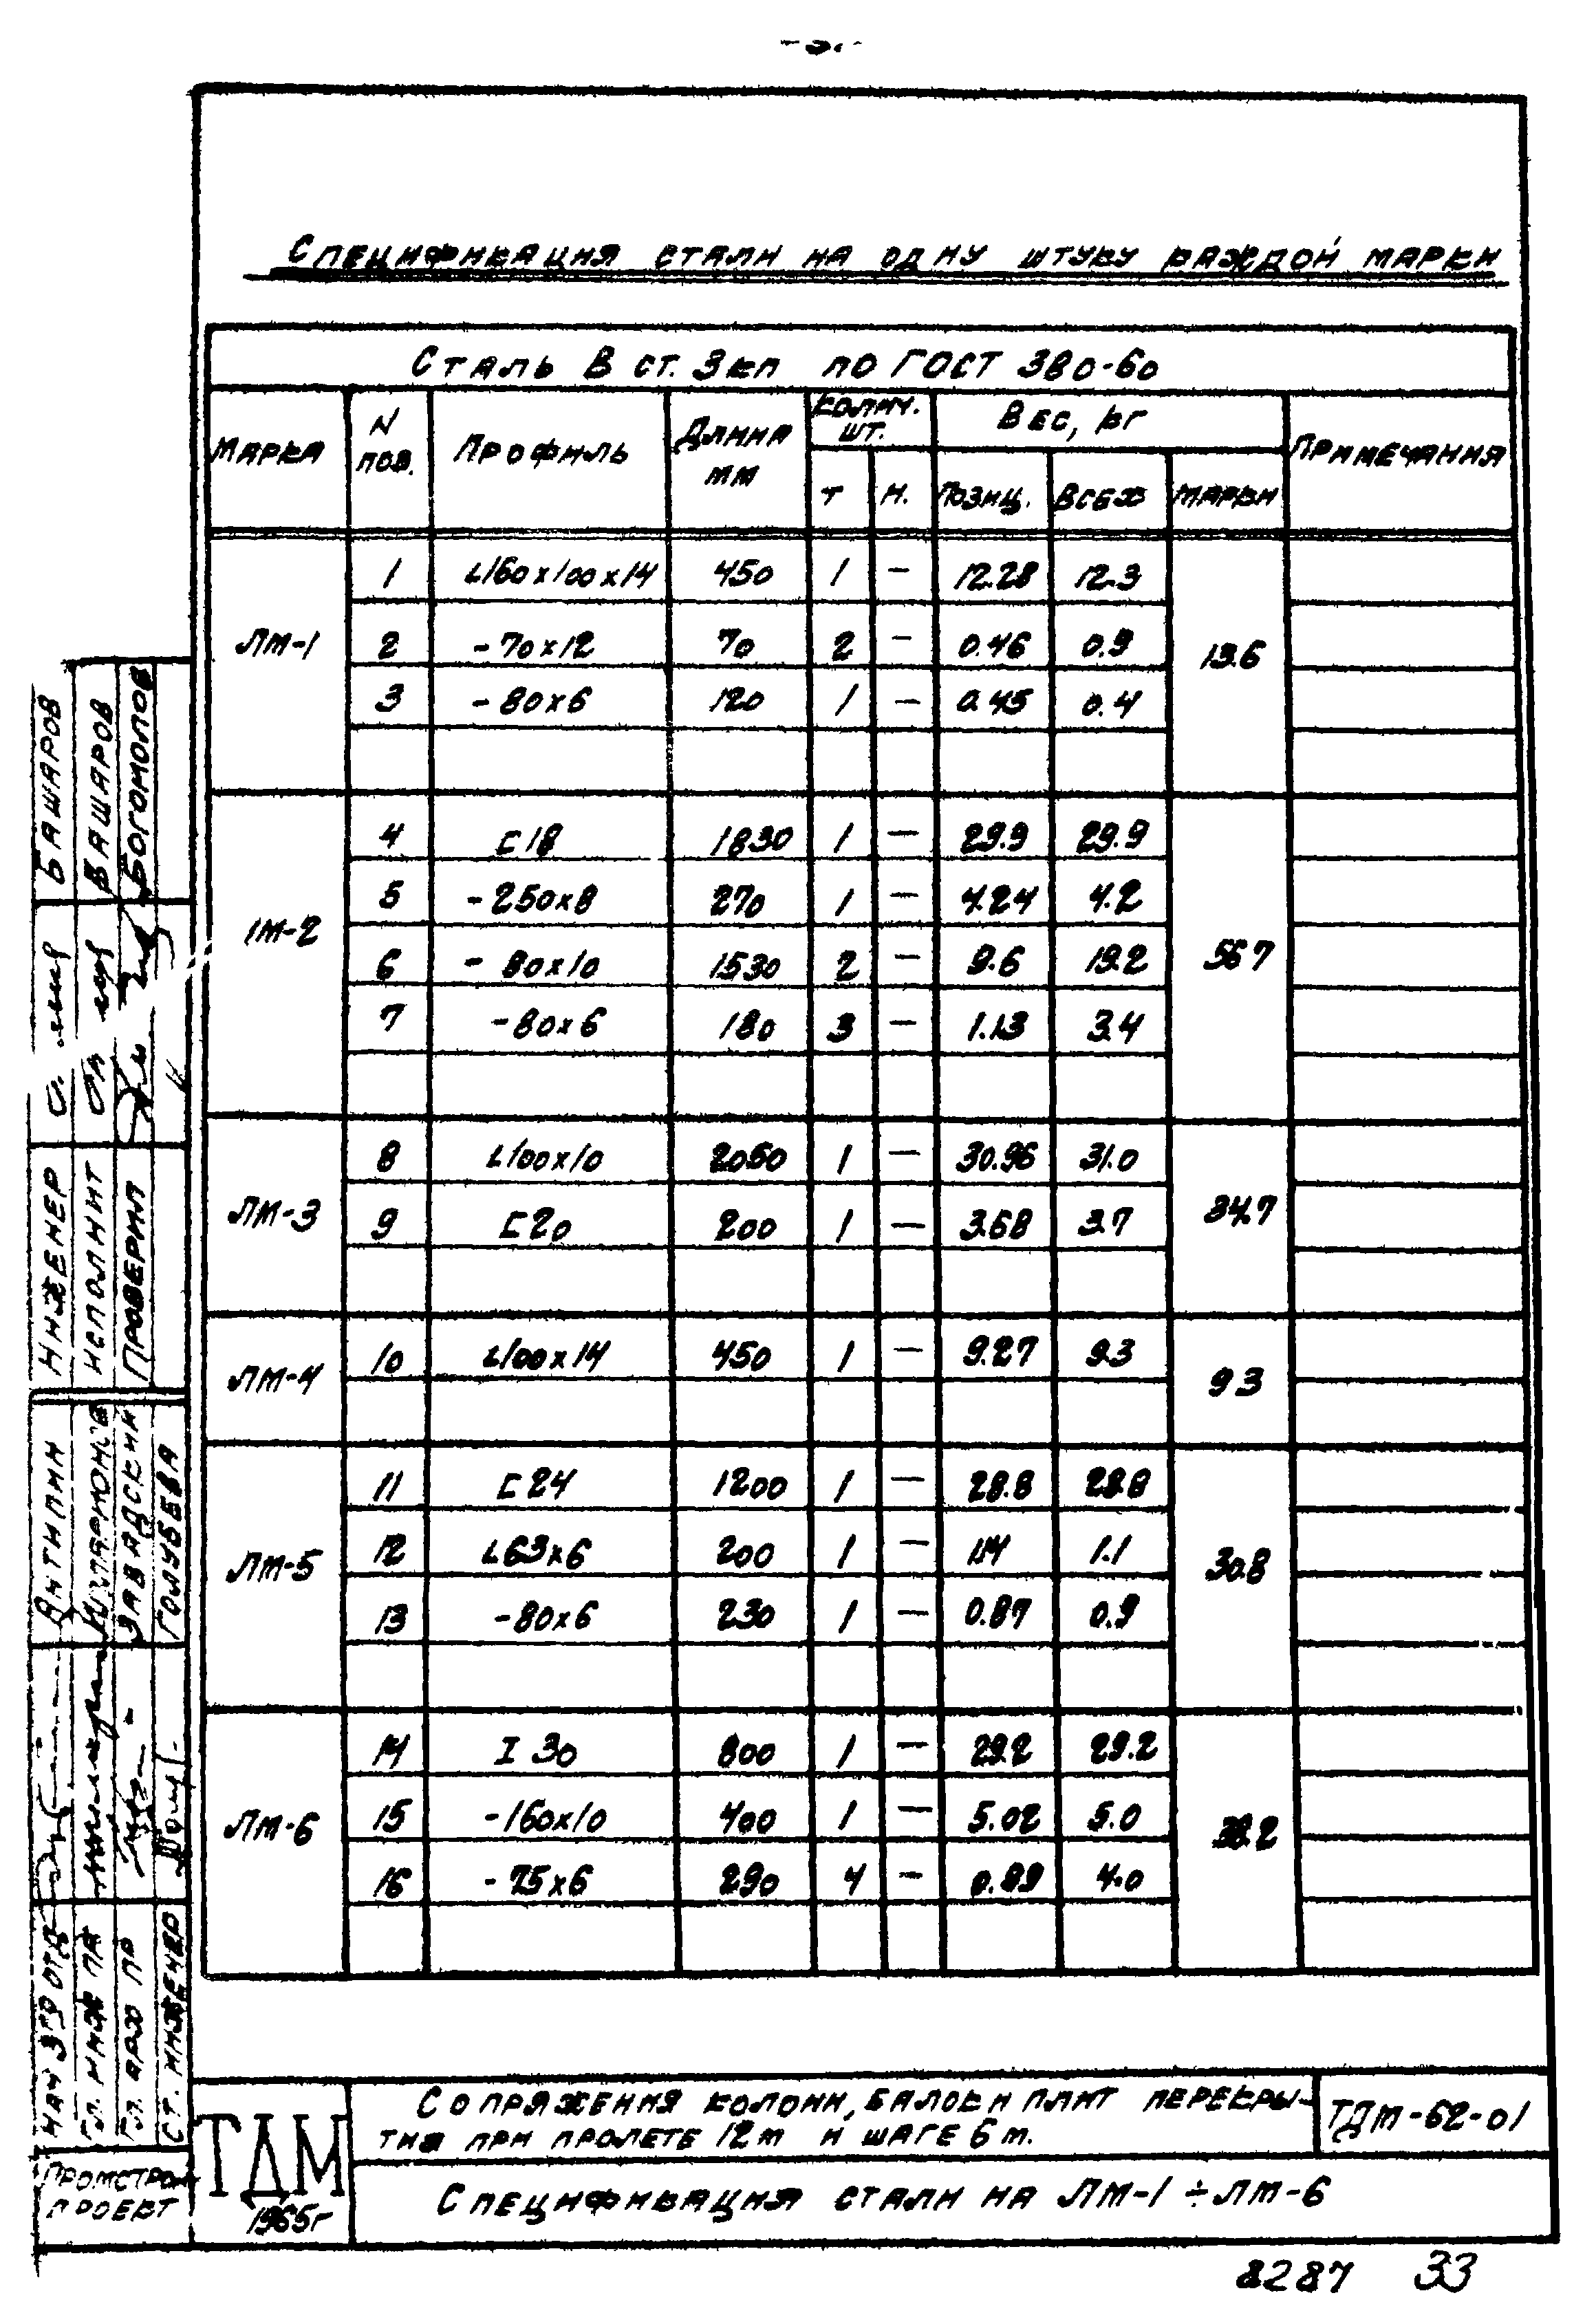 Спецификация стали на одну штуку каждой марки
Сталь В ст. 3кп по ГОСТ 380-60
Марка N поз. Профиль Длина мм Колич. шт. Вес, кг Примечания
т н. Позиц. Всех Марки
ЛМ-1 13.6
1 L160x100x14 450 1 — 12.28 12.3
2 -70x12 70 2 — 0.46 0.9
3 -80x6 120 1 — 0.45 0.4
ЛМ-2 56.7
4 [18 1830 1 — 29.9 29.9
5 -250x8 270 1 — 4.24 4.2
6 -80x10 1530 2 — 9.6 19.2
7 -80x6 180 3 — 1.13 3.4
ЛМ-3 34.7
8 L100x10 2050 1 — 30.96 31.0
9 [20 200 1 — 3.68 3.7
ЛМ-4 9.3
10 L100x14 450 1 — 9.27 9.3
ЛМ-5 30.8
11 [24 1200 1 — 28.8 28.8
12 L63x6 200 1 — 1.14 1.1
13 -80x6 230 1 — 0.87 0.9
ЛМ-6 38.2
14 I 30 800 1 — 29.2 29.2
15 -160x10 400 1 — 5.02 5.0
16 -75x6 290 4 — 0.99 4.0
Инженер Башаров
Исполнит Башаров
Проверил Богомолов
Нач ЭТР отд Антипин
Гл. инж пр
Гл. арх пр Завадский
Ст. инженер Голубева
Промстрой-
проект
ТДМ
1965г
Сопряжения колонн, балок и плит перекры-
тия при пролете 12м и шаге 6м.
ТДМ-62-01
Спецификация стали на ЛМ-1 ÷ ЛМ-6
8287 33